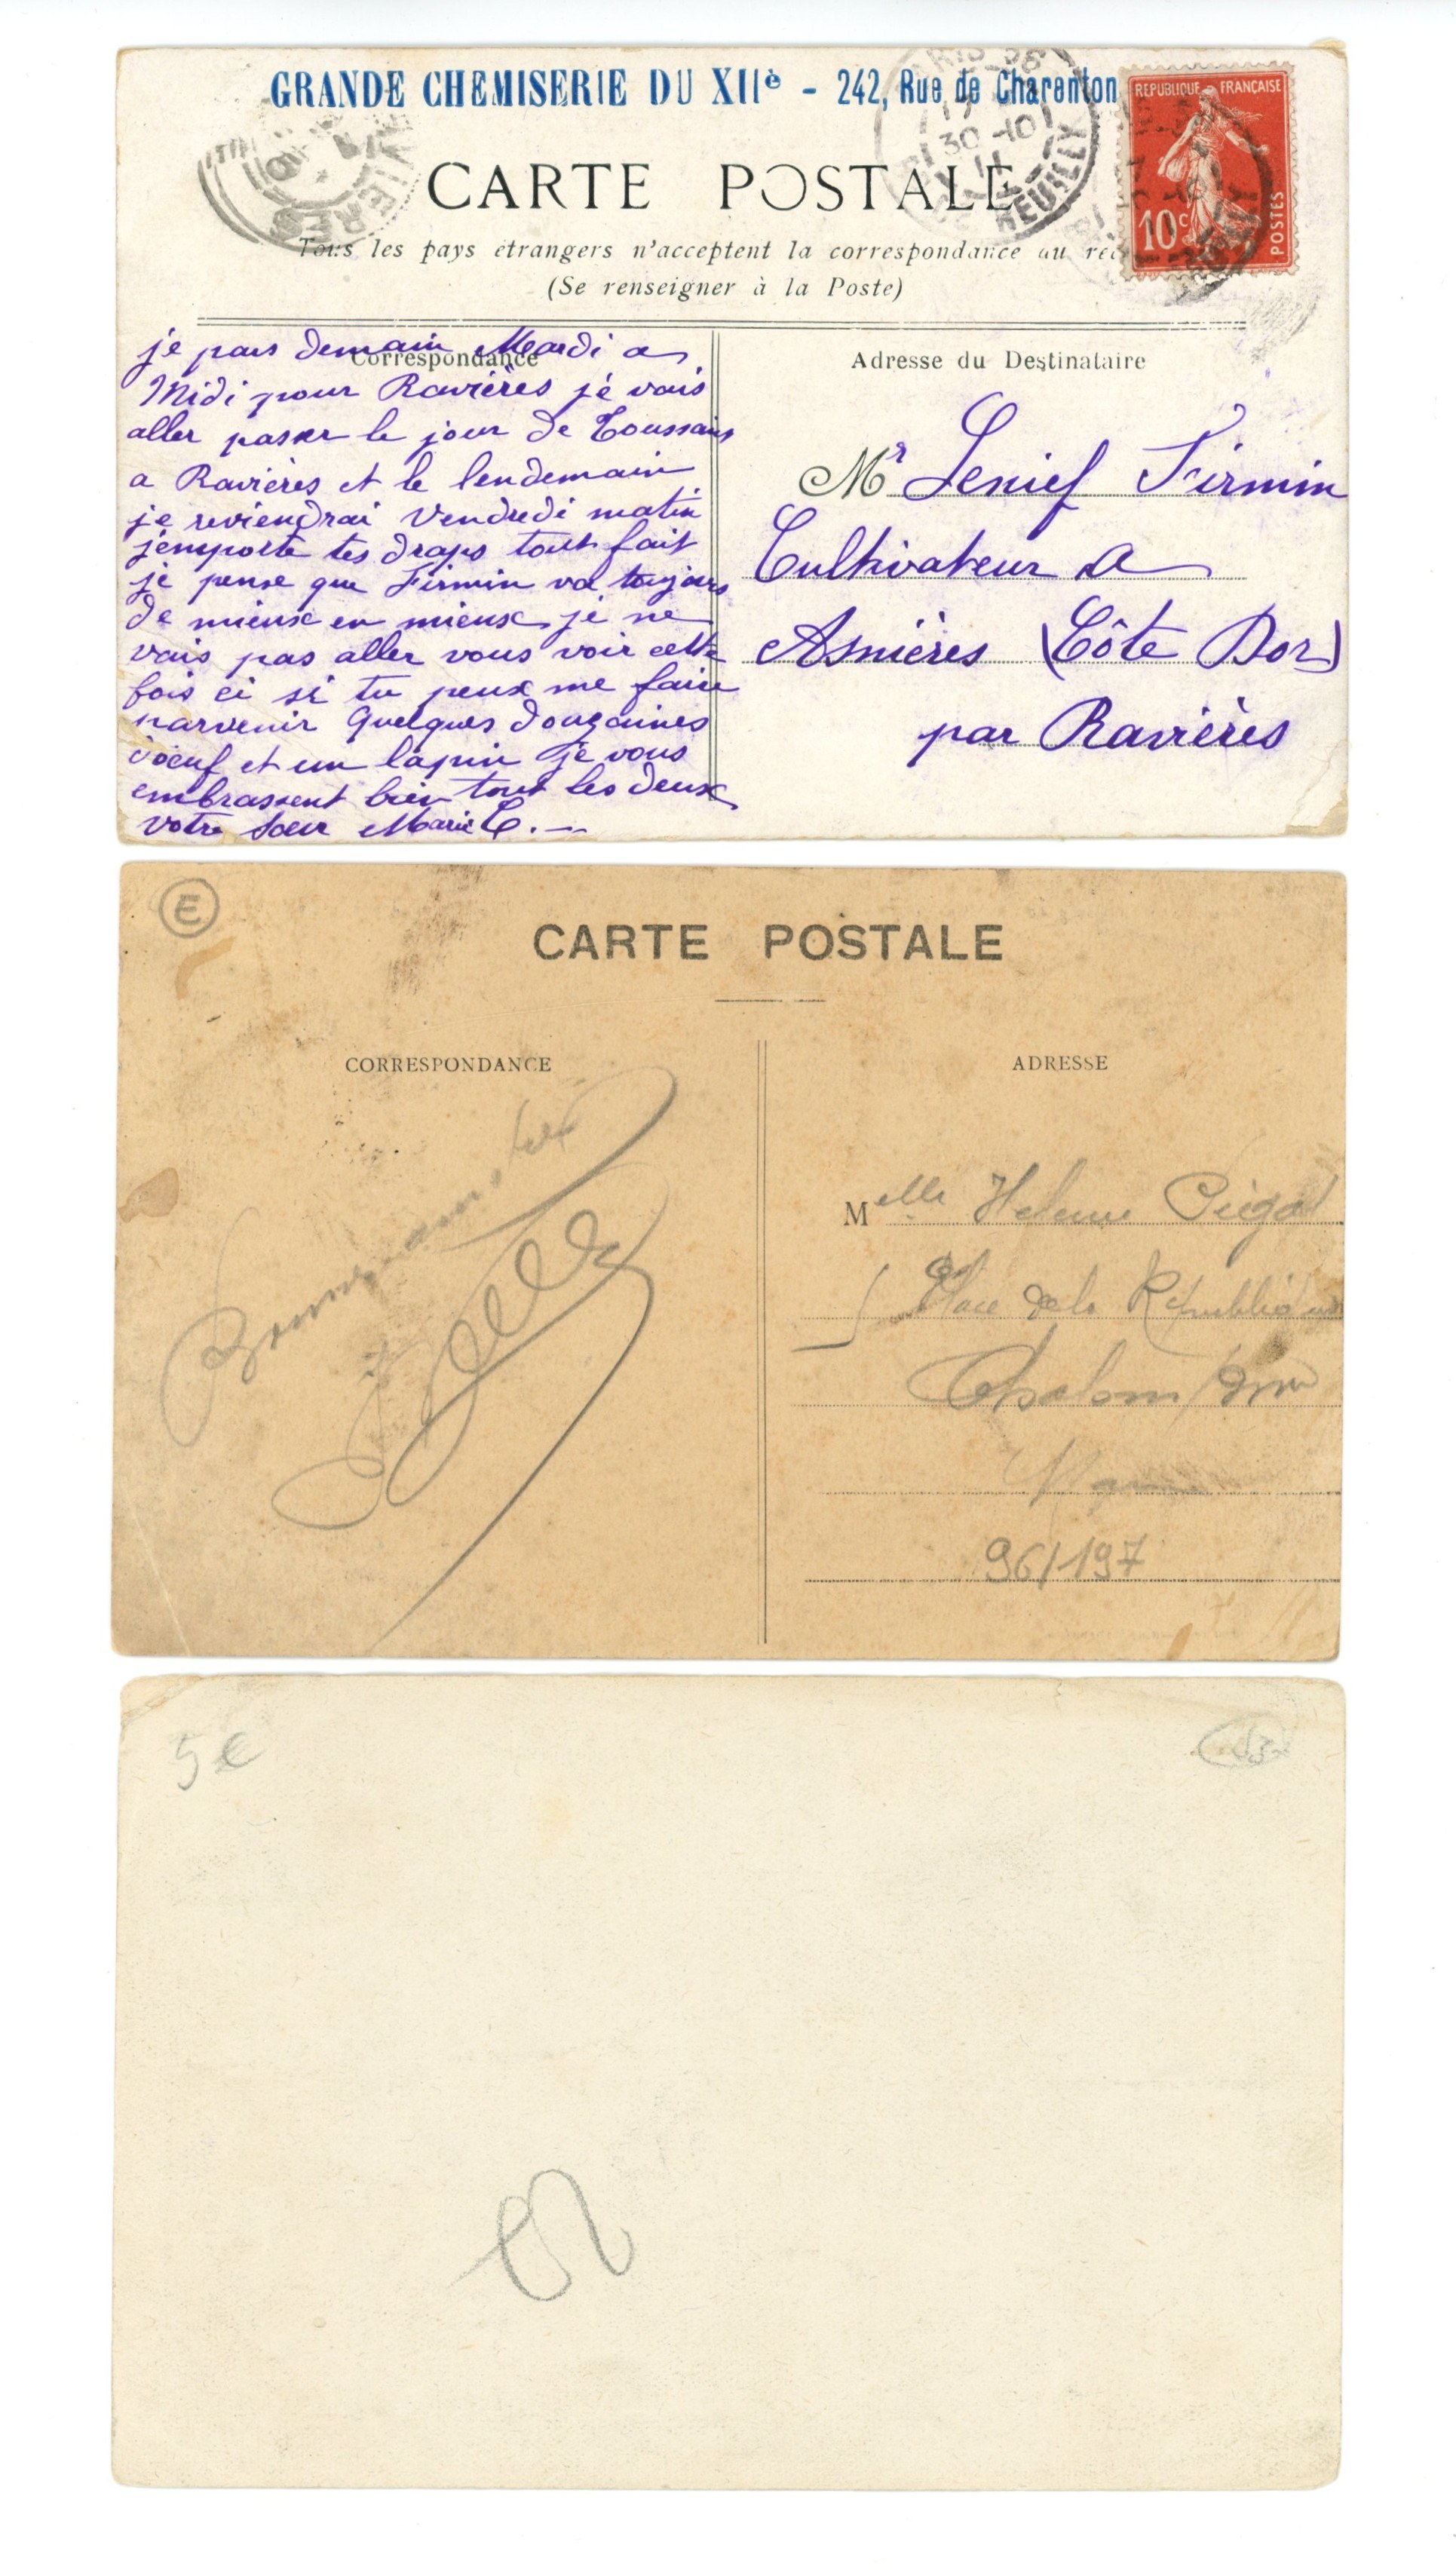 GRANDE CHEMISERIE DU XIIè - 242, Rue de Charenton
REPUBLIQUE FRANÇAISE
10c
POSTES
30-10
REUILLY
CARTE POSTALE
Tous les pays étrangers n'acceptent la correspondance au
(Se renseigner à la Poste)
Correspondance
je pars demain Mardi a
Midi pour Ravières je vais
aller passer le jour de Toussaint
a Ravières et le lendemain
je reviendrai Vendredi matin
j'emporte tes draps tout fait
je pense que Firmin va toujours
de mieux en mieux je ne
vais pas aller vous voir cette
fois ci si tu peux me faire
parvenir quelques douzaines
d'oeuf et un lapin je vous
embrassent bien tout les deux
votre soeur Marie C.
Adresse du Destinataire
Mr Lenief Firmin
Cultivateur a
Asnières (Côte Dor)
par Ravières
E
CARTE POSTALE
CORRESPONDANCE
ADRESSE
Melle Helene
Place de la République
Chalons / Marne
Marne
96/197
5€